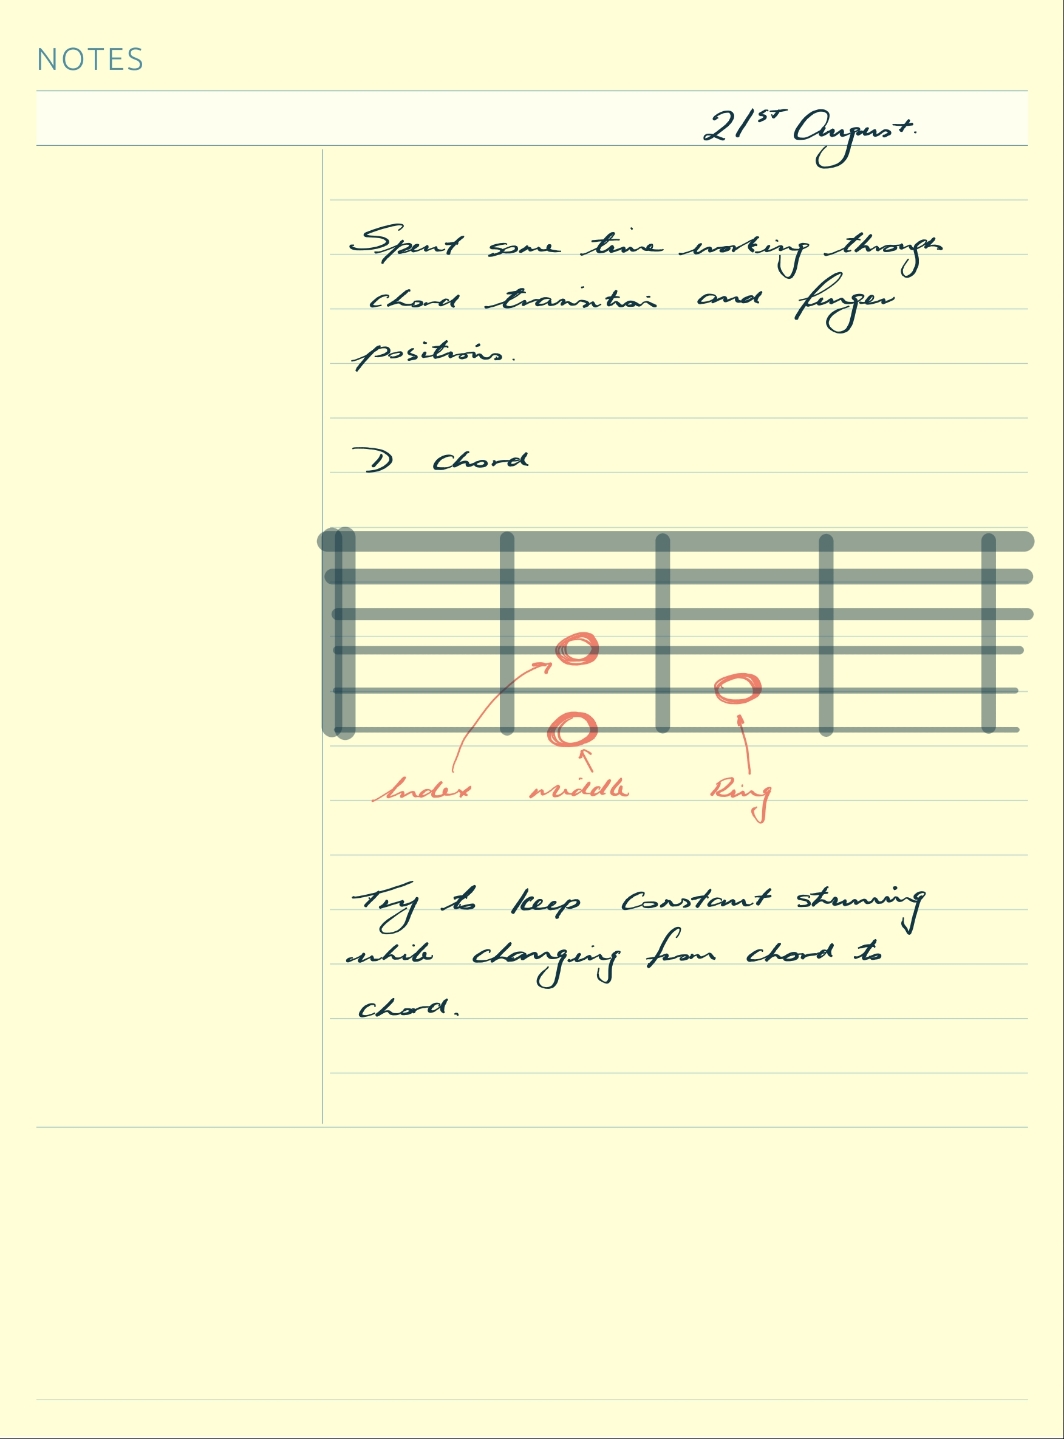 NOTES
21ST August.
Spent some time working through
chord transition and finger
positions.
D chord
Index middle Ring
Try to keep constant strumming
while changing from chord to
chord.